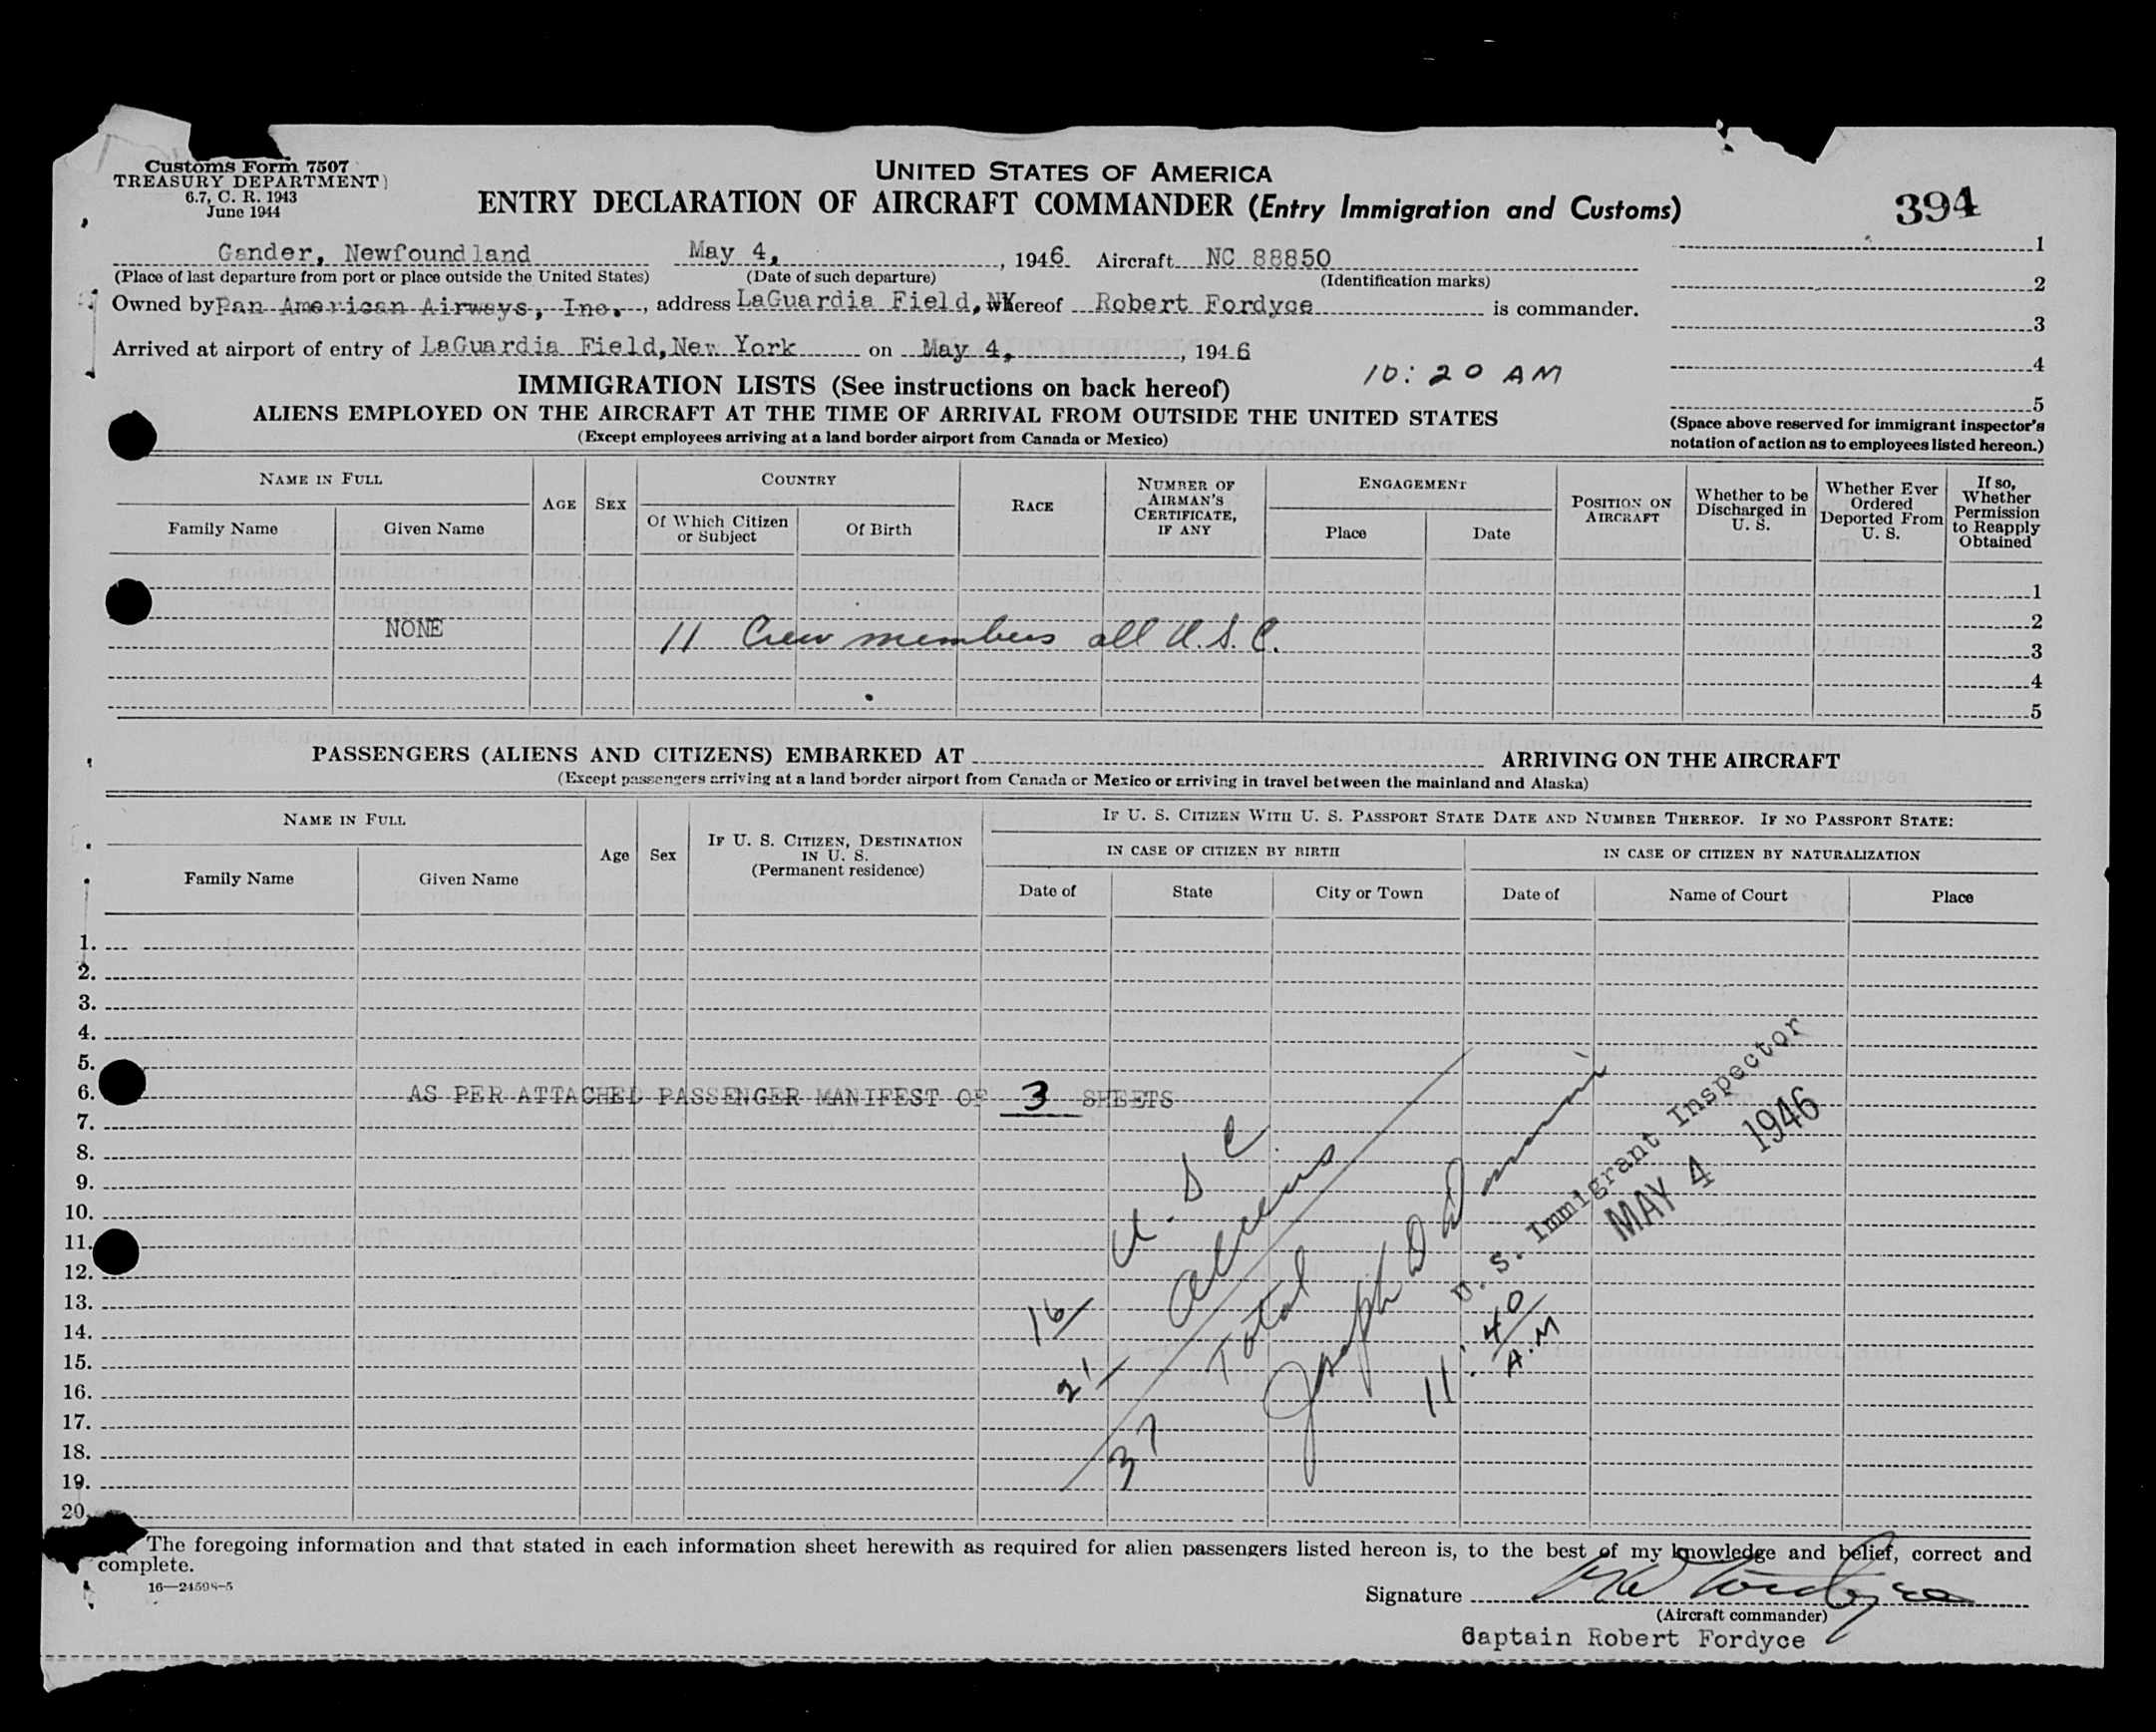 Customs Form 7507
TREASURY DEPARTMENT
6.7, C. R. 1943
June 1944
UNITED STATES OF AMERICA
ENTRY DECLARATION OF AIRCRAFT COMMANDER (Entry Immigration and Customs)
394
Gander, Newfoundland May 4, , 1946 Aircraft NC 88850
(Place of last departure from port or place outside the United States) (Date of such departure) (Identification marks)
Owned by Pan American Airways, Inc. , address LaGuardia Field, NY whereof Robert Fordyce is commander.
Arrived at airport of entry of LaGuardia Field, New York on May 4, , 1946
10:20 AM
1
2
3
4
5
(Space above reserved for immigrant inspector's
notation of action as to employees listed hereon.)
IMMIGRATION LISTS (See instructions on back hereof)
ALIENS EMPLOYED ON THE AIRCRAFT AT THE TIME OF ARRIVAL FROM OUTSIDE THE UNITED STATES
(Except employees arriving at a land border airport from Canada or Mexico)
NAME IN FULL
Family Name Given Name
AGE
SEX
COUNTRY
Of Which Citizen or Subject
Of Birth
RACE
NUMBER OF AIRMAN'S CERTIFICATE, IF ANY
ENGAGEMENT
Place Date
POSITION ON AIRCRAFT
Whether to be Discharged in U. S.
Whether Ever Ordered Deported From U. S.
If so, Whether Permission to Reapply Obtained
1
2
NONE 11 Crew members all U.S.C.
3
4
5
PASSENGERS (ALIENS AND CITIZENS) EMBARKED AT ARRIVING ON THE AIRCRAFT
(Except passengers arriving at a land border airport from Canada or Mexico or arriving in travel between the mainland and Alaska)
NAME IN FULL
Family Name Given Name
Age
Sex
IF U. S. CITIZEN, DESTINATION IN U. S.
(Permanent residence)
IF U. S. CITIZEN WITH U. S. PASSPORT STATE DATE AND NUMBER THEREOF. IF NO PASSPORT STATE:
IN CASE OF CITIZEN BY BIRTH
IN CASE OF CITIZEN BY NATURALIZATION
Date of State City or Town Date of Name of Court Place
1.
2.
3.
4.
5.
6. AS PER ATTACHED PASSENGER MANIFEST OF 3 SHEETS
7.
8.
9.
10.
11.
12.
13.
14.
15.
16.
17.
18.
19.
20.
16 U.S.C.
21 Aliens
37 Total
Joseph D
U. S. Immigrant Inspector
MAY 4 1946
11:40 A.M
The foregoing information and that stated in each information sheet herewith as required for alien passengers listed hereon is, to the best of my knowledge and belief, correct and
complete.
16—24598-5
Signature
(Aircraft commander)
Captain Robert Fordyce